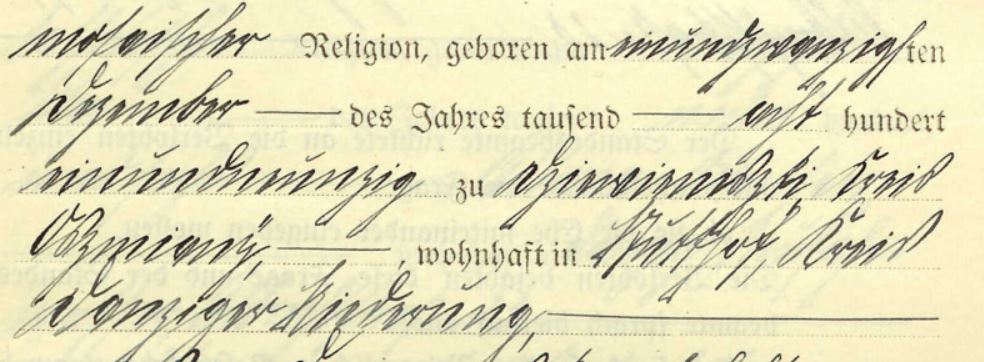 mosaischer Religion, geboren am einundzwanzigsten
Dezember des Jahres tausend acht hundert
einundneunzig zu Dziewieniszki, Kreis
Oszmiany, wohnhaft in Stutthof, Kreis
Danziger Niederung,